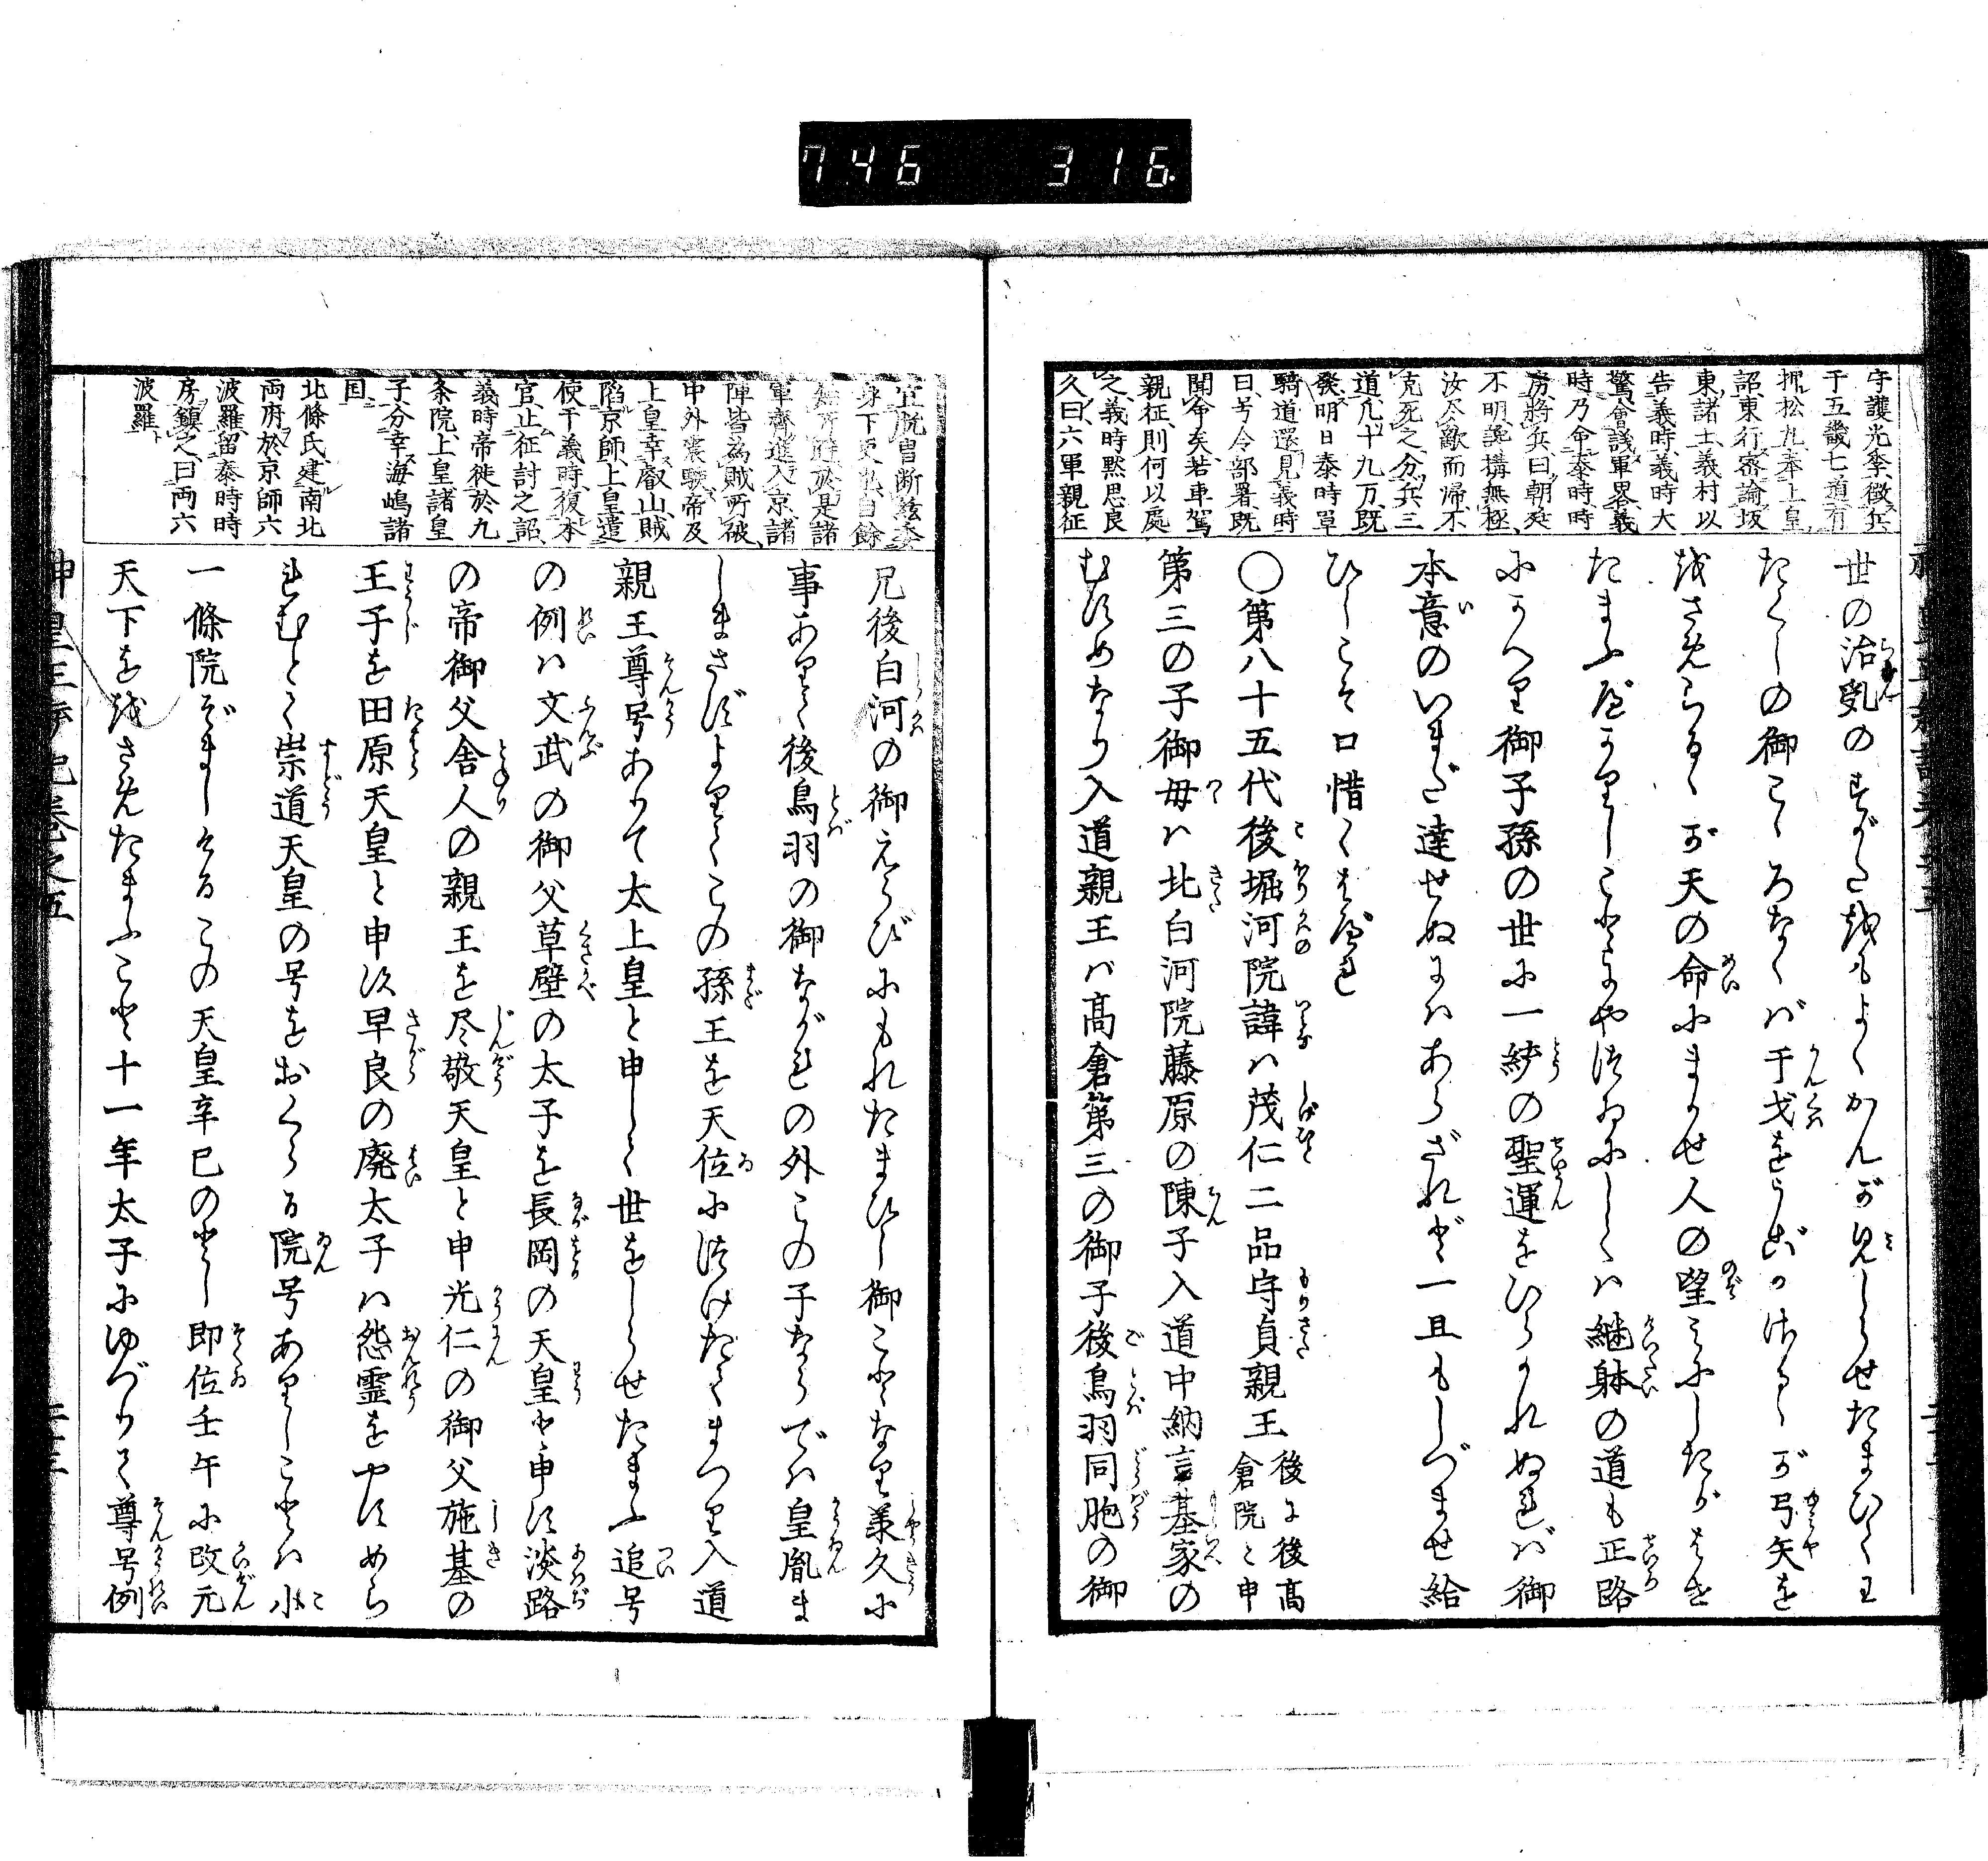 746 316
守護光季徴兵
于五畿七道有
押松丸奉上皇
詔東行密諭坂
東諸士義村以
告義時義時大
驚會議軍畧義
時乃命泰時時
房将兵曰朝廷
不明讒搆無極
汝尽敵而帰不
克死之分兵三
道凡十九万既
發明日泰時單
騎道還見義時
曰号令部署既
聞命矣若車駕
親征則何以處
之義時黙思良
久曰六軍親征
世の治乱のすがたをもよくかんがみしらせたまひてわ
たくしの御こゝろなくバ干戈をうごかさるゝが弓矢を
をさめらるゝが天の命にまかせ人の望ミにしたがはせ
たまふべかりしことにやつゐにしてハ継躰の道も正路
にかへり御子孫の世に一統の聖運をひらかれぬれバ御
本意のいまだ達せぬにハあらざれど一旦もしづませ給
ひしこそ口惜くはべれ
〇第八十五代後堀河院諱ハ茂仁二品守貞親王後に後高倉院と申
第三の子御母ハ北白河院藤原の陳子入道中納言基家の
むすめなり入道親王バ高倉第三の御子後鳥羽同胞の御
宜脱冑断絃委
身下吏
於是諸
軍齊進入京諸
陣皆為賊所破
中外震駭帝及
上皇幸叡山賊
陷京師上皇遣
使于義時復本
官止征討之詔
義時帝徙於九
条院上皇諸皇
子分幸海嶋諸
国
北條氏建南北
両府於京師六
波羅留泰時時
房鎮之曰両六
波羅
兄後白河の御えらびにもれたまひし御ことなり承久に
事ありて後鳥羽の御ながれの外この子ならでハ皇胤ま
しまさずよりてこの孫王を天位につけたてまつり入道
親王尊号ありて太上皇と申して世をしらせたまふ追号
の例ハ文武の御父草壁の太子を長岡の天皇と申す淡路
の帝御父舎人の親王を尽敬天皇と申光仁の御父施基の
王子を田原天皇と申次早良の廃太子ハ怨霊をやすめら
れむとて崇道天皇の号をおくらる院号ありしことハ小
一條院ぞましけるこの天皇辛巳のとし即位壬午に改元
天下ををさめたまふこと十一年太子にゆづりて尊号例
神皇正統記巻之五